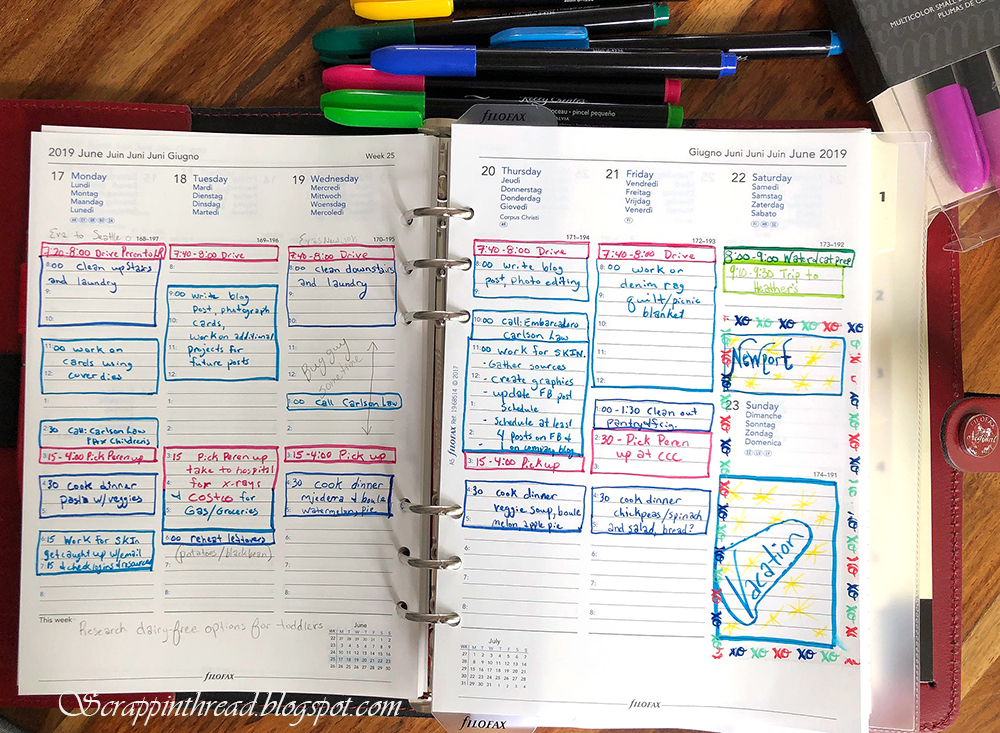 MULTICOLOR SMALL
PLUMAS DE
Kelly Creates
pincel pequeño
FILOFAX
2019 June Juin Juni Juni Giugno
Week 25
17 Monday
Lundi
Montag
Maandag
Lunedì
168-197
Eva to Seattle
7:20-8:00 Drive Peren to
8:00 clean upstairs
and laundry
11:00 work on
cards using
cover dies
2:30 Call: Carlson Law
Children's
3:15-4:00 Pick Peren up
4:30 Cook dinner
pasta w/veggies
6:15 Work for SKIN
get caught up w/email
7:15 & check logins & resources
18 Tuesday
Mardi
Dienstag
Dinsdag
Martedì
169-196
7:40-8:00 Drive
9:00 write blog
Post, photograph
cards,
work on additional
projects for
future posts
3:15 Pick Peren up
take to hospital
for x-rays
+ COSTCO for
Gas/Groceries
6:00 reheat leftovers
(potatoes/blackbean)
19 Wednesday
Mercredi
Mittwoch
Woensdag
Mercoledì
170-195
7:40-8:00 Drive
8:00 clean downstairs
and laundry
Bug guy
sometime
1:00 Call Carlson Law
3:15-4:00 Pick up
4:30 Cook dinner
mjedema & boule
watermelon, pie
This week
Research dairy-free options for toddlers
June
FILOFAX
A5 FILOFAX Ref. 1968514 © 2017
Giugno Juni Juni Juin June 2019
20 Thursday
Jeudi
Donnerstag
Donderdag
Giovedì
Corpus Christi
171-194
7:40-8:00 Drive
8:00 write blog
post, photo editing
10:00 Call: Embarcadero
Carlson Law
11:00 Work for SKIN
- Gather sources
- create graphics
- update FB post
Schedule
- Schedule at least
4 posts on FB &
1 on caraway blog
3:15-4:00 Pick up
4:30 cook dinner
veggie soup, boule
melon apple pie
July
21 Friday
Vendredi
Freitag
Vrijdag
Venerdì
172-193
7:40-8:00 Drive
8:00 work on
denim rag
quilt/picnic
blanket
1:00-1:30 Clean out
pantry & frig.
2:30 - Pick Peren
up at CCC
4:30 cook dinner
chickpeas/spinach
and salad, bread?
22 Saturday
Samedi
Samstag
Zaterdag
Sabato
173-192
8:00-9:00 Water & cat prep
9:10-9:30 Trip to
Heather's
XO XO XO XO XO
Newport
23 Sunday
Dimanche
Sonntag
Zondag
Domenica
174-191
Vacation
XO XO XO XO
FILOFAX
1
2
3
4
FILOFAX
Scrappinthread.blogspot.com